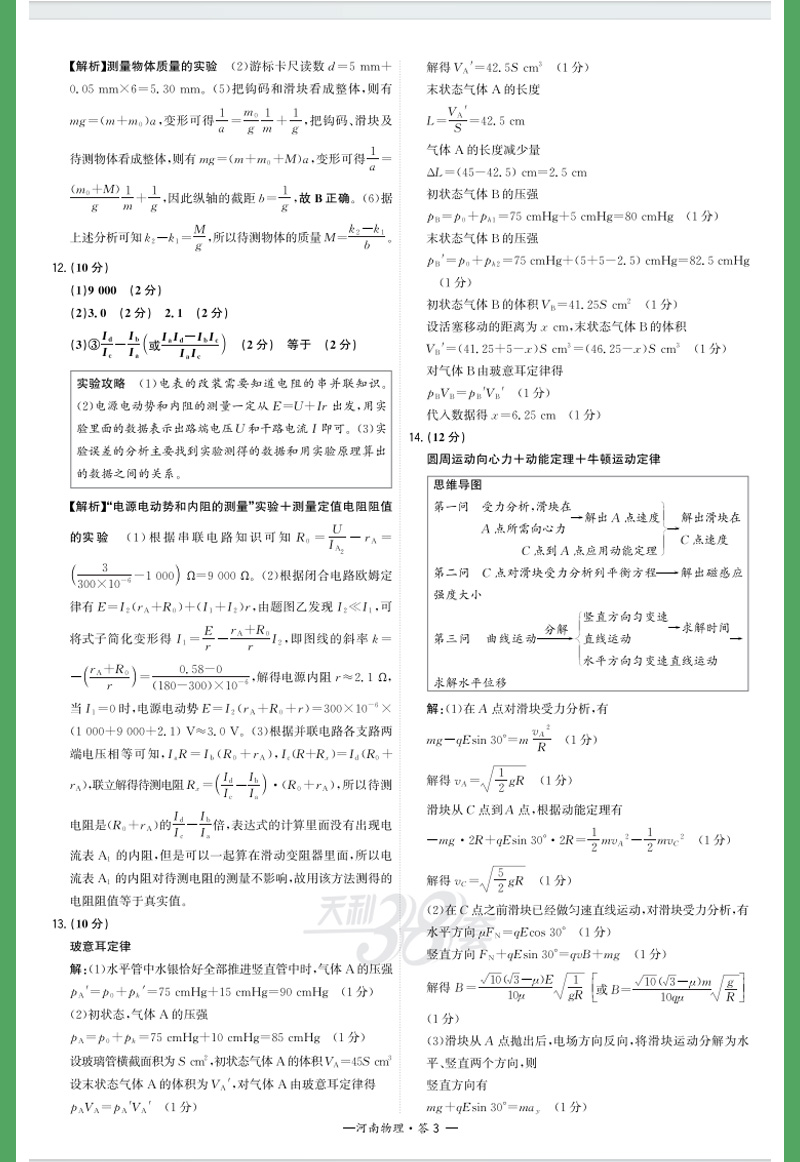 【解析】测量物体质量的实验 (2)游标卡尺读数 d=5 mm+
0.05 mm×6=5.30 mm。(5)把钩码和滑块看成整体,则有
mg=(m+m₀)a,变形可得1/a=m₀/g 1/m+1/g,把钩码、滑块及
待测物体看成整体,则有 mg=(m+m₀+M)a,变形可得1/a=
(m₀+M)/g 1/m+1/g,因此纵轴的截距 b=1/g,故 B 正确。(6)据
上述分析可知 k₂-k₁=M/g,所以待测物体的质量 M=(k₂-k₁)/b。
12.(10 分)
(1)9 000 (2 分)
(2)3.0 (2 分) 2.1 (2 分)
(3)③I_d/I_c-I_b/I_a(或(I_aI_d-I_bI_c)/(I_aI_c)) (2 分) 等于 (2 分)
实验攻略 (1)电表的改装需要知道电阻的串并联知识。
(2)电源电动势和内阻的测量一定从 E=U+Ir 出发,用实
验里面的数据表示出路端电压 U 和干路电流 I 即可。(3)实
验误差的分析主要找到实验测得的数据和用实验原理算出
的数据之间的关系。
【解析】“电源电动势和内阻的测量”实验+测量定值电阻阻值
的实验 (1)根据串联电路知识可知 R₀=U/I_A₂-r_A=
(3/(300×10⁻⁶)-1 000) Ω=9 000 Ω。(2)根据闭合电路欧姆定
律有 E=I₂(r_A+R₀)+(I₁+I₂)r,由题图乙发现 I₂≪I₁,可
将式子简化变形得 I₁=E/r-(r_A+R₀)/r I₂,即图线的斜率 k=
-((r_A+R₀)/r)=(0.58-0)/((180-300)×10⁻⁶),解得电源内阻 r≈2.1 Ω,
当 I₁=0 时,电源电动势 E=I₂(r_A+R₀+r)=300×10⁻⁶×
(1 000+9 000+2.1) V≈3.0 V。(3)根据并联电路各支路两
端电压相等可知,I_aR=I_b(R₀+r_A),I_c(R+R_x)=I_d(R₀+
r_A),联立解得待测电阻 R_x=(I_d/I_c-I_b/I_a)·(R₀+r_A),所以待测
电阻是(R₀+r_A)的I_d/I_c-I_b/I_a倍,表达式的计算里面没有出现电
流表 A₁ 的内阻,但是可以一起算在滑动变阻器里面,所以电
流表 A₁ 的内阻对待测电阻的测量不影响,故用该方法测得的
电阻阻值等于真实值。
13.(10 分)
玻意耳定律
解:(1)水平管中水银恰好全部推进竖直管中时,气体 A 的压强
p_A′=p₀+p_h′=75 cmHg+15 cmHg=90 cmHg (1 分)
(2)初状态,气体 A 的压强
p_A=p₀+p_h=75 cmHg+10 cmHg=85 cmHg (1 分)
设玻璃管横截面积为 S cm²,初状态气体 A 的体积 V_A=45S cm³
设末状态气体 A 的体积为 V_A′,对气体 A 由玻意耳定律得
p_AV_A=p_A′V_A′ (1 分)
解得 V_A′=42.5S cm³ (1 分)
末状态气体 A 的长度
L=V_A′/S=42.5 cm
气体 A 的长度减少量
ΔL=(45-42.5) cm=2.5 cm
初状态气体 B 的压强
p_B=p₀+p_h1=75 cmHg+5 cmHg=80 cmHg (1 分)
末状态气体 B 的压强
p_B′=p₀+p_h2=75 cmHg+(5+5-2.5) cmHg=82.5 cmHg
(1 分)
初状态气体 B 的体积 V_B=41.25S cm² (1 分)
设活塞移动的距离为 x cm,末状态气体 B 的体积
V_B′=(41.25+5-x)S cm³=(46.25-x)S cm³ (1 分)
对气体 B 由玻意耳定律得
p_BV_B=p_B′V_B′ (1 分)
代入数据得 x=6.25 cm (1 分)
14.(12 分)
圆周运动向心力+动能定理+牛顿运动定律
思维导图
第一问 受力分析,滑块在
A 点所需向心力→解出 A 点速度
C 点到 A 点应用动能定理
→解出滑块在
C 点速度
第二问 C 点对滑块受力分析列平衡方程→解出磁感应
强度大小
第三问 曲线运动 分解→
竖直方向匀变速
直线运动→求解时间
水平方向匀变速直线运动→
求解水平位移
解:(1)在 A 点对滑块受力分析,有
mg-qEsin 30°=m v_A²/R (1 分)
解得 v_A=√(1/2 gR) (1 分)
滑块从 C 点到 A 点,根据动能定理有
-mg·2R+qEsin 30°·2R=1/2 mv_A²-1/2 mv_C² (1 分)
解得 v_C=√(5/2 gR) (1 分)
(2)在 C 点之前滑块已经做匀速直线运动,对滑块受力分析,有
水平方向 μF_N=qEcos 30° (1 分)
竖直方向 F_N+qEsin 30°=qvB+mg (1 分)
解得 B=√10(√3-μ)E/(10μ) √(1/(gR)) [或 B=√10(√3-μ)m/(10qμ) √(g/R)]
(1 分)
(3)滑块从 A 点抛出后,电场方向反向,将滑块运动分解为水
平、竖直两个方向,则
竖直方向有
mg+qEsin 30°=ma_y (1 分)
天利38套
—河南物理·答 3 —